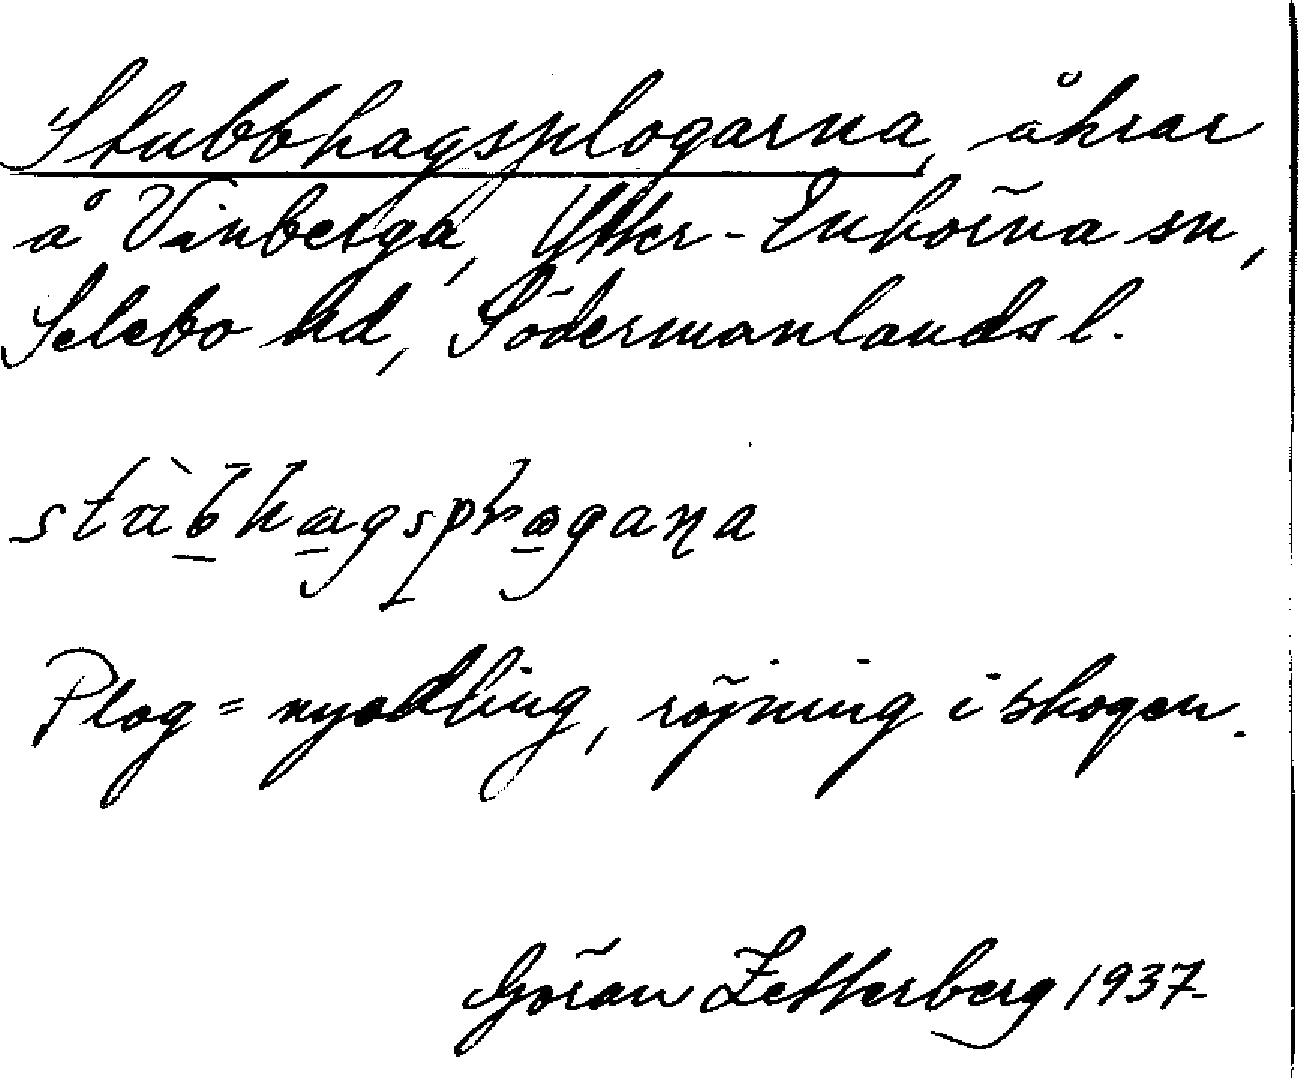 Stubbhagsplogarna, åkrar
å Vinberga, Ytter-Enhörna sn,
Selebo hd, Södermanlands l.
Plog = nyodling, röjning i skogen.
Göran Zetterberg 1937